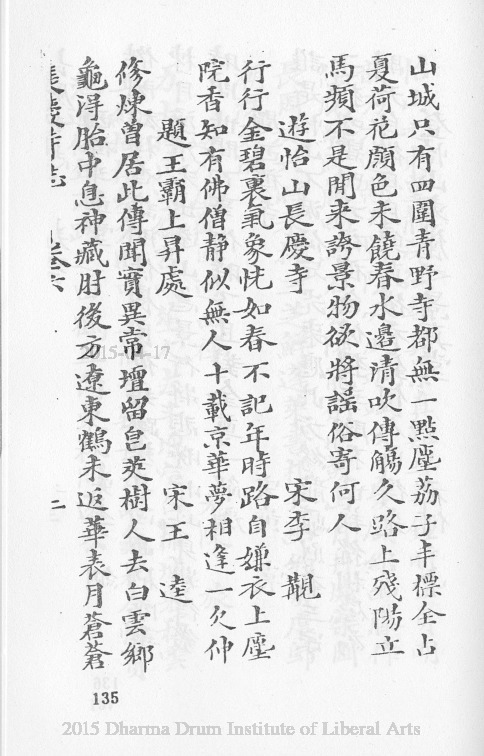 山城只有四圍青野寺都無一點塵荔子丰標全占
夏荷花顏色未饒春水邊清吹傳觴久路上殘陽立
馬頻不是閒來誇景物欲將謡俗寄何人
遊怡山長慶寺 宋李 覯
行行金碧裏氣象恍如春不記年時路自嫌衣上塵
院香知有佛僧静似無人十載京華夢相逢一欠伸
題王霸上昇處 宋王 逵
修煉曽居此傳聞實異常壇留皂莢樹人去白雲鄉
龜淂胎中息神藏肘後方遼東鶴未返華表月蒼蒼
長慶寺志 卷六 二
135
2015-04-17
2015 Dharma Drum Institute of Liberal Arts